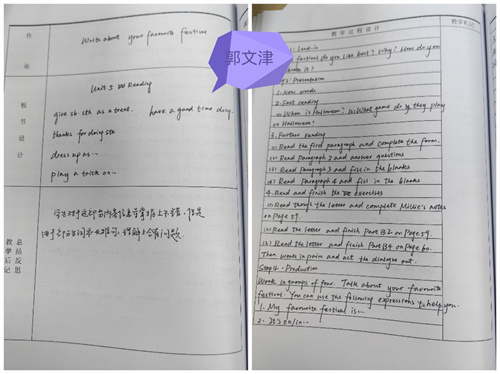 作
业
Write about your favourite festival
郭文津
板
书
设
计
Unit 3 Reading
give sb. sth as a treat. have a good time doing.
thanks for doing sth
dress up as...
play a trick on...
总结反思
教学后记
学生对于这部分内容
教学过程设计
教学札记
festivals do you like best? Why? How do you
Presentation
1. New words
2. Fast reading
When is Halloween? What game do they play
on Halloween?
3. Further reading
(1) Read the first paragraph and complete the form.
(2) Read Paragraph 2 and answer questions
(3) Read Paragraph 3 and fill in the blanks
(4) Read Paragraph 4 and fill in the blanks
4. Read and finish the exercises
(1) Read through the letter and complete Millie's notes
on Page 59.
(2) Read the letter and finish Part B2 on Page 59.
(3) Read the letter and finish Part B4 on Page 60.
Then work in pairs and act the dialogue out.
Step 4. Production
Work in groups of four. Talk about your favourite
festival. You can use the following expressions to help you.
1. My favourite festival is...
2. It's on/in...